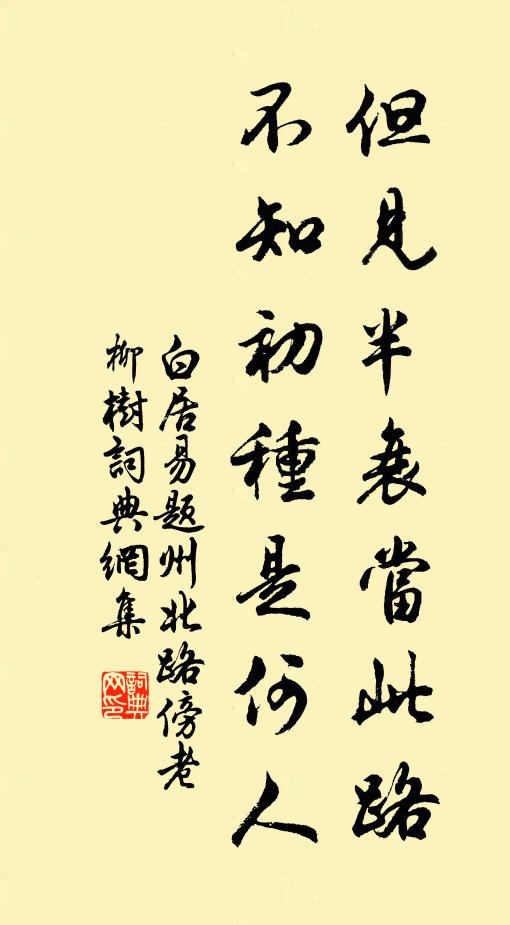 但見半衰當此路
不知初種是何人
白居易題州北路傍老
柳樹詞典網集
詞典
网印